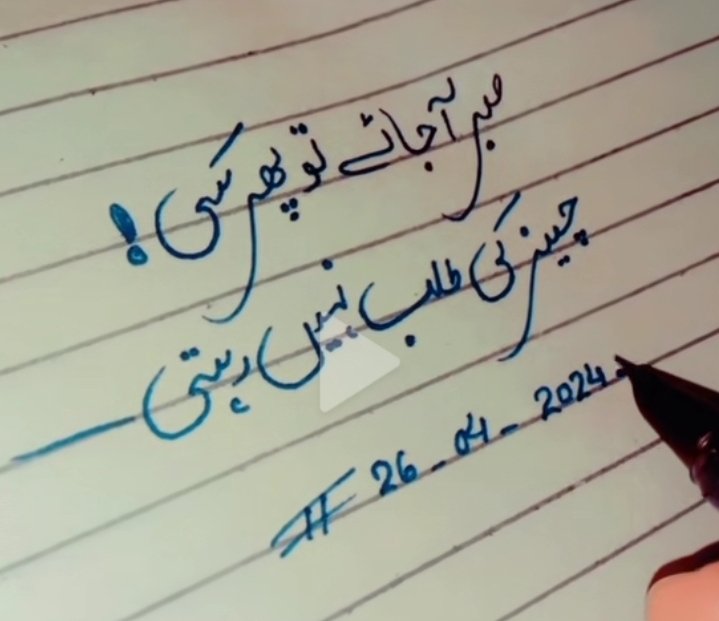 صبر آجائے تو پھر کسی !
چیز کی طلب نہیں رہتی
26-04-2024